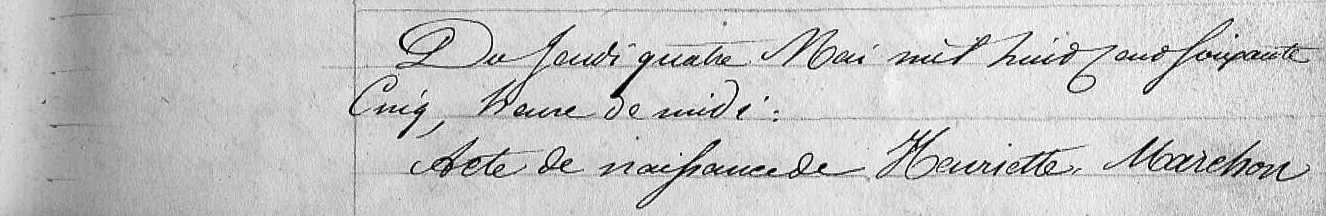 Du Jeudi quatre Mai mil huid cend soixante
Cinq, heure de midi :
Acte de naissance de Henriette Marchon